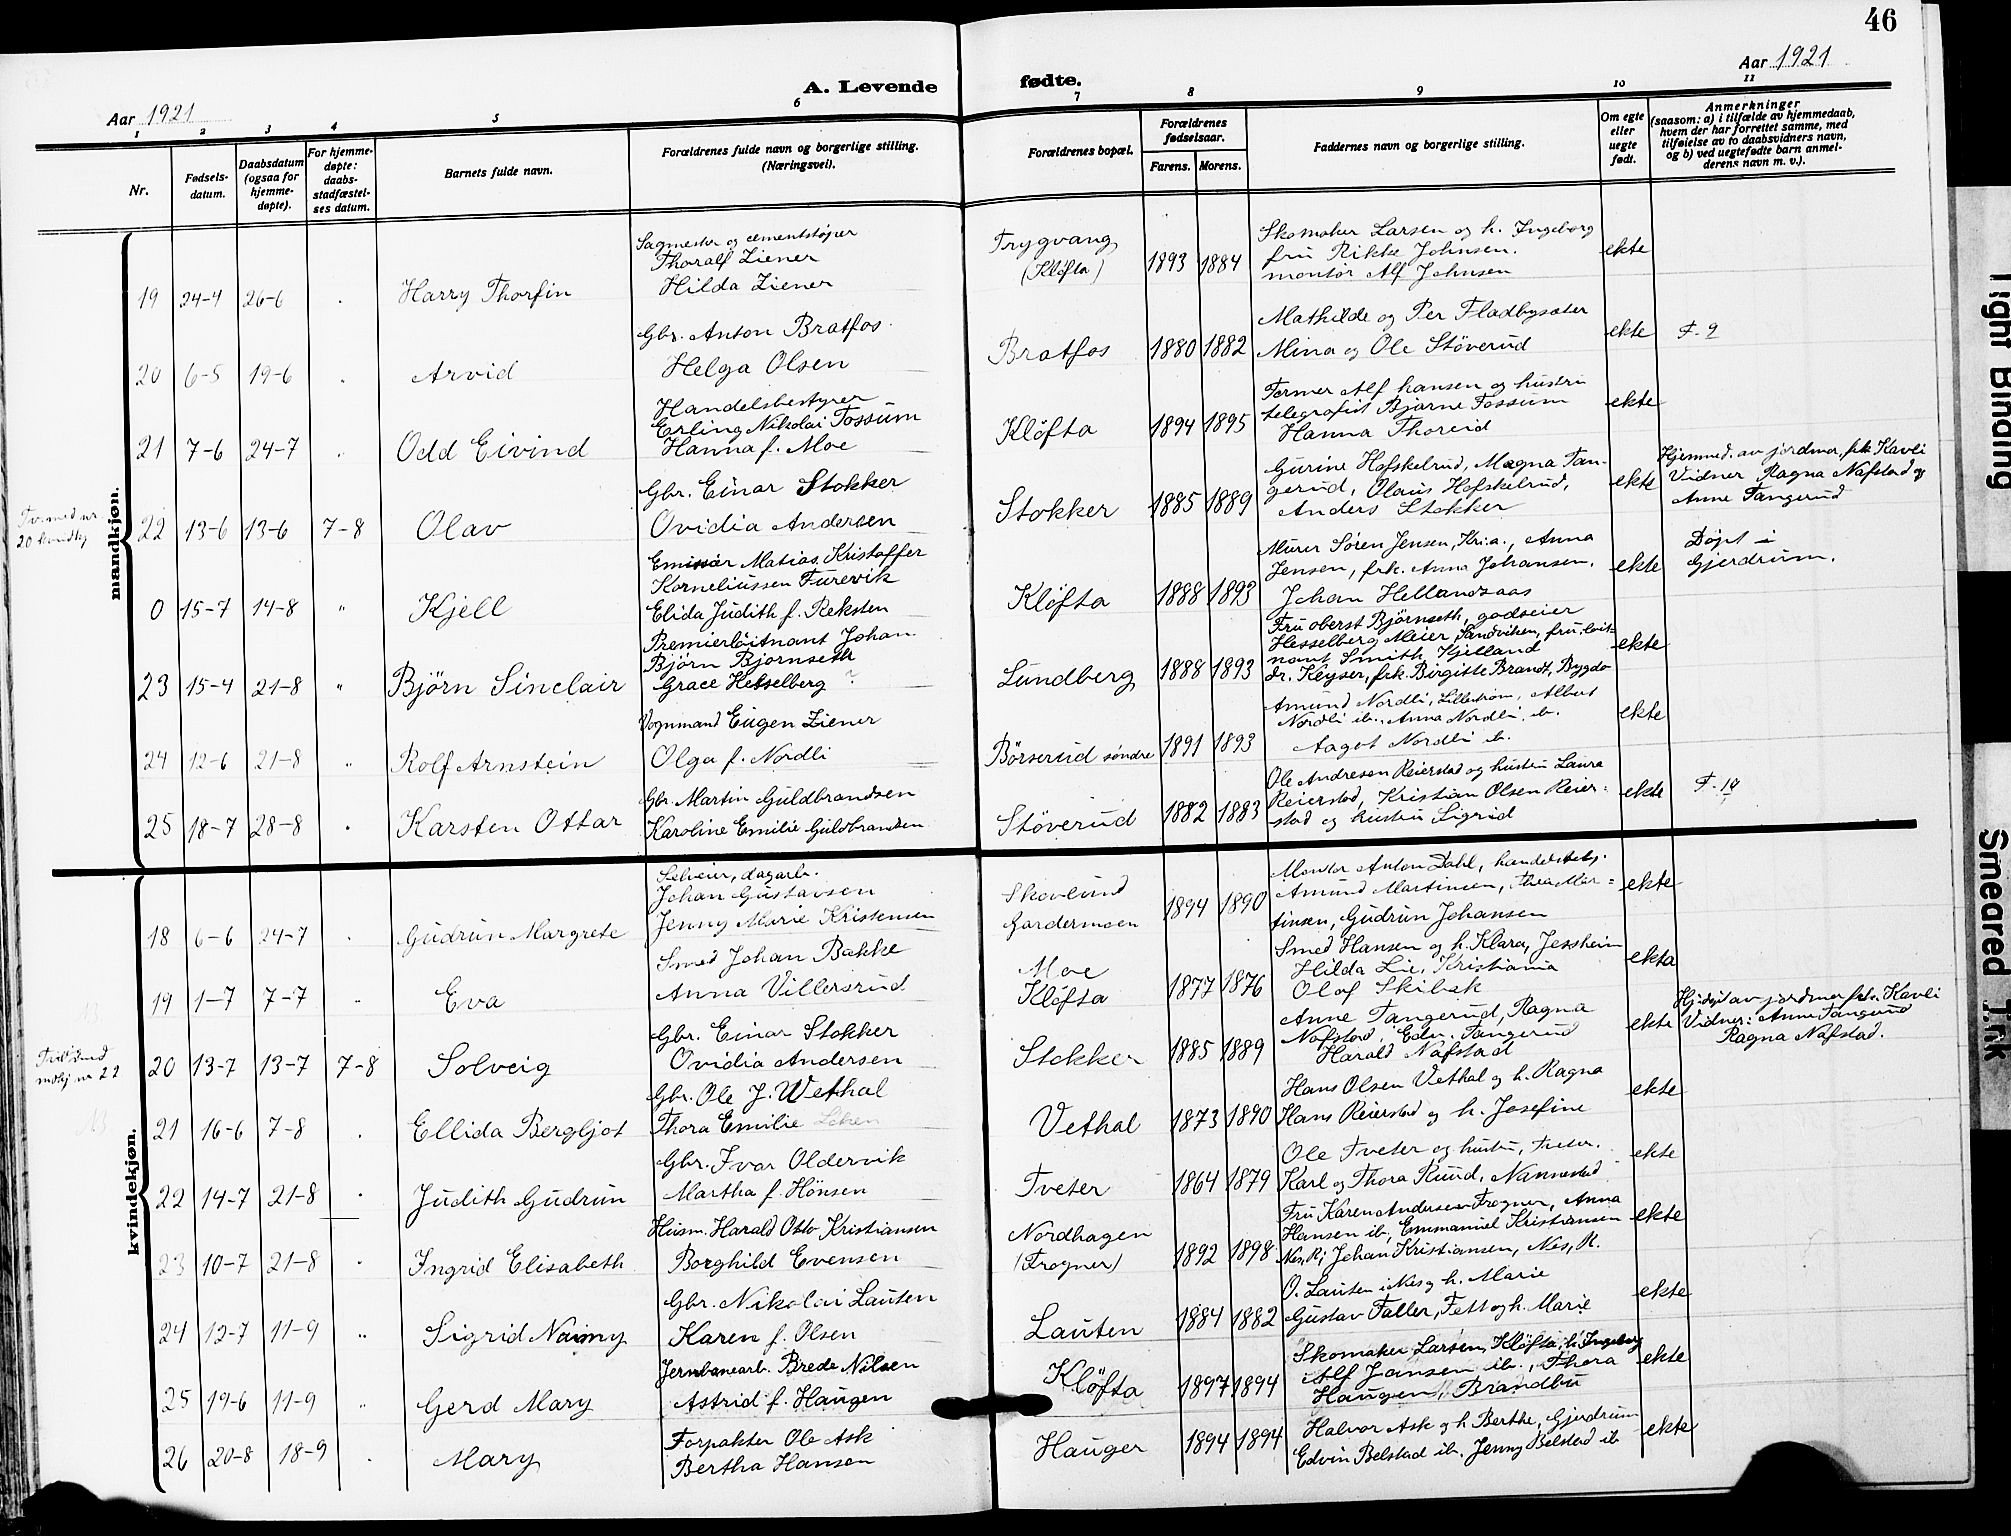 46
Aar 1921
A. Levende
fødte.
Aar 1921
1 2 3 4 5 6 7 8 9 10 11
Nr.
Fødsels-
datum.
Daabsdatum
(ogsaa for
hjemme-
døpte).
For hjemme-
døpte:
daabs-
stadfæstel-
ses datum.
Barnets fulde navn.
Forældrenes fulde navn og borgerlige stilling.
(Næringsvei).
Forældrenes bopæl.
Forældrenes
fødselsaar.
Farens. Morens.
Faddernes navn og borgerlige stilling.
Om egte
eller
uegte
født.
Anmerkninger
(saasom: a) i tilfælde av hjemmedaab,
hvem der har forrettet samme, med
tilføielse av to daabsvidners navn,
og b) ved uegtefødte barn anmel-
derens navn m. v.).
mandkjøn.
19 24-4 26-6 Harry Thorfin
Sagmester og cementstøper
Thoralf Ziener
Hilda Ziener
Trygvang
(Kløfta)
1893 1884
Skomaker Larsen og h. Ingeborg
fru Rikke Johnsen.
montør Alf Johnsen
ekte
20 6-5 19-6 Arvid
Gbr. Anton Bratfos
Helga Olsen
Bratfos
1880 1882
Mathilde og Per Fladbysæter
Mina og Ole Støverud
ekte
F. 9
21 7-6 24-7 Odd Eivind
Handelsbestyrer
Erling Nikolai Fossum
Hanna f. Moe
Kløfta
1894 1895
Former Alf hansen og hustru
telegrafist Bjarne Fossum
Hanna Thoreid
ekte
22 13-6 13-6 7-8 Olav
Gbr. Einar Stokker
Ovidia Andersen
Stokker
1885 1889
Gurine Hofskelrud, Magna Tan-
gerud, Olaus Hofskelrud,
Anders Stokker
ekte
Hjemmed. av jordmor frk Kavli
Vidner Ragna Nafstad og
Anne Tangerud
0 15-7 14-8 " Kjell
Emissær Matias Kristoffer
Korneliussen Furevik
Elida Judith f. Reksten
Kløfta
1888 1893
Murer Søren Jensen, Kr.a., Anna
Jensen, frk. Anna Johansen.
Johan Hellandsaas
ekte
Døpt i
Gjerdrum.
23 15-4 21-8 " Bjørn Sinclair
Premierløitnant Johan
Bjørn Bjørnseth
Grace Hesselberg ?
Lundberg
1888 1893
Fru oberst Bjørnseth, godseier
Hesselberg Meier, Sandviken, fru løit-
nant Smith Kjelland
dr. Keyser, frk. Birgitte Brandt, Bygdø
ekte
24 12-6 21-8 " Rolf Arnstein
Vognmand Eugen Ziener
Olga f. Nordli
Børserud søndre
1891 1893
Amund Nordli, Lillestrøm, Albert
Nordli ib., Anna Nordli, ib.
Aagot Nordli ib.
ekte
25 18-7 28-8 Karsten Ottar
Gbr. Martin Guldbrandsen
Karoline Emilie Guldbrandsen
Støverud
1882 1883
Ole Andresen Reierstad og hustru Laura
Reierstad, Kristian Olsen Reier-
stad og hustru Sigrid
ekte
F. 10
kvindekjøn.
18 6-6 24-7 Gudrun Margrete
Selveier, dagarb.
Johan Gustavsen
Jenny Marie Kristensen
Skovlund
Gardermoen
1894 1890
Montør Anton Dahl, handelsbetj.
Amund Martinsen, Thea Mar-
tinsen, Gudrun Johansen
ekte
19 1-7 7-7 Eva
Smed Johan Bakke
Anna Villersrud
Moe
Kløfta
1877 1876
Smed Hansen og h. Klara, Jessheim
Hilda Lie, Kristiania
Olaf Skibak
ekta
20 13-7 13-7 7-8 Solveig
Gbr. Einar Stokker
Ovidia Andersen
Stokker
1885 1889
Anne Tangerud, Ragna
Nafstad, Edv. Tangerud
Harald Nafstad
ekte
Hj.døpt av jordmor frk. Kavli
Vidner: Anne Tangerud
Ragna Nafstad.
21 16-6 7-8 Ellida Bergljot
Gbr. Ole J. Wethal
Thora Emilie
Vethal
1873 1890
Hans Olsen Vethal og h. Ragna
Hans Reierstad og h. Josefine
ekte
22 14-7 21-8 Judith Gudrun
Gbr. Ivar Oldervik
Martha f. Hønsen
Tveter
1864 1879
Ole Tveter og hustru, Tveter.
Karl og Thora Rund, Nannestad
ekte
23 10-7 21-8 Ingrid Elisabeth
Husm. Harald Otto Kristiansen
Borghild Evensen
Nordhagen
(Frogner)
1892 1898
Fru Karen Andersen Frogner, Anna
Hansen ib, Emmanuel Kristiansen
Nes, R; Johan Kristiansen, Nes, R.
ekte
24 12-7 11-9 " Sigrid Naimy
Gbr. Nikolai Lauten
Karen f. Olsen
Lauten
1884 1882
O. Lauten i Nes og h. Marie
Gustav Faller, Fett og h. Marie
ekte
25 19-6 11-9 " Gerd Mary
Jernbanearb. Brede Nilsen
Astrid f. Haugen
Kløfta
1897 1894
Skomaker Larsen, Kløfta, h. Ingeborg
Alf Jansen ib., Thora
Haugen, Brandbu
ekte
26 20-8 18-9 Mary
Forpakter Ole Ask
Bertha Hansen
Hauger
1894 1894
Halvor Ask og h Berthe, Gjerdrum
Edvin Belstad ib. Jenny Belstad ib
ekte
Tight Binding
Smeared Ink